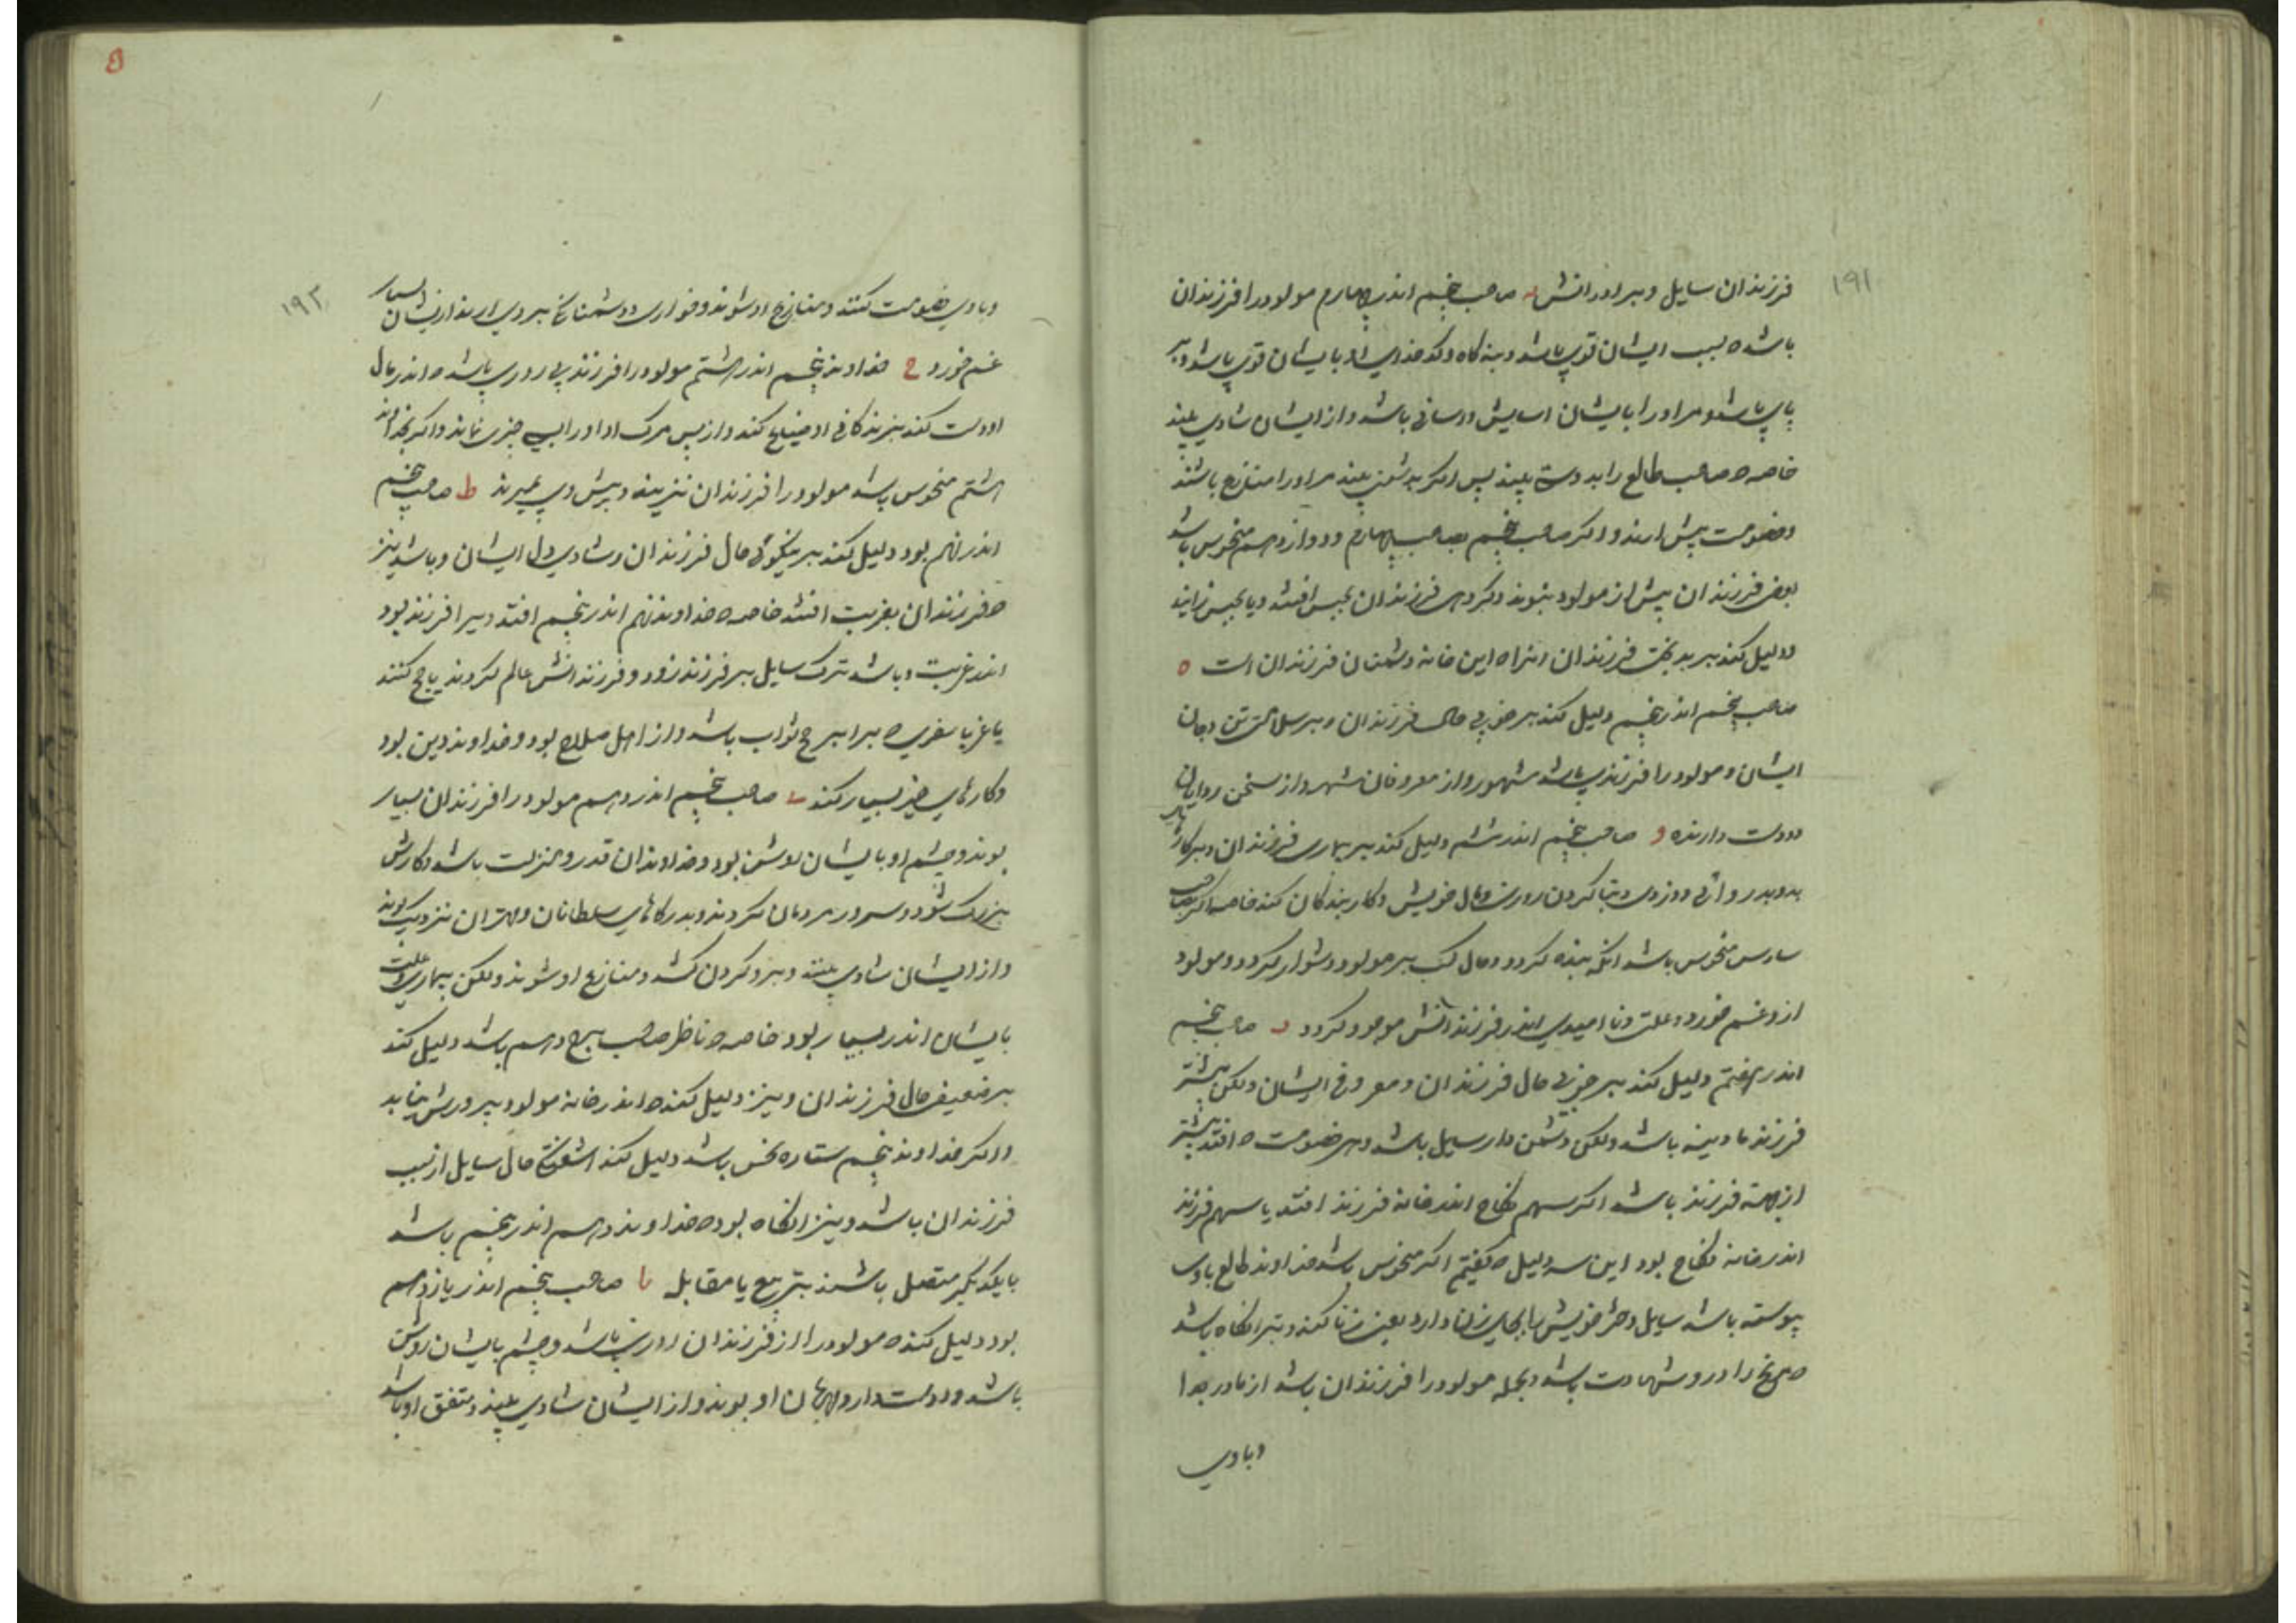 ۱۹۱
فرزندان سایل و برادرانش د صاحب پنجم اندر چهارم مولود را فرزندان
باشد ه بسبب ایشان قوی باشد و بنه کاه و کدخدای او بایشان قوی باشد و بر
پای باشد و مر او را بایشان اسایش و رسانی باشد و از ایشان شادی بیند
خاصه ه صاحب طالع را بدوستی بیند پس اکر بدشمنی بیند مر او را منازع باشند
و خصومت پیش ارند و اکر صاحب پنجم بصاحب چهارم و دوازدهم منحوس باشد
بعضی فرزندان پیش از مولود بنوند و کروهی فرزندان بحبس افتند و یا بحبس زایند
و دلیل کند بر بدبختی فرزندان ایراه این خانه دشمنان فرزندان است ه
صاحب پنجم اندر پنجم دلیل کند بر خوبی حال فرزندان و بر سلامتی تن و جان
ایشان و مولود را فرزندی باشد مشهور و از معروفان شهر و از سخن روایان
دوست دارنده و صاحب پنجم اندر ششم دلیل کند بر بیماری فرزندان و بر کارهای
بد و بدروائی و دزدی و تباکردن روزی و مال خویش و کار بندکان کند خاصه اکر صاحب
سادس منحوس باشد انکه بنده کردد و مال کسب بر مولود دشوار کردد و مولود
از و غم خورد و علت و ناامیدی اندر فرزندانش موجود کردد ز صاحب پنجم
اندر هفتم دلیل کند بر خوبی حال فرزندان و معروفی ایشان ولکن بیشتر
فرزند مادینه باشد ولکن دشمن دار سایل باشد و هر خصومت ه افتد بیشتر
از جهة فرزند باشد اکر سهم نکاح اندر خانه فرزند افتد یا سهم فرزند
اندر خانه نکاح بود این سه دلیل ه کفتیم اکر منحوس باشد خداوند طالع باوی
پیوسته باشد سایل دختر خویش بجای زن دارد یعنی زنا کند و بتر انکاه باشد
ه مریخ را در و شهادت باشد و بجمله مولود را فرزندان باشد از مادر جدا
وباوی
۱۹۲
وباوی خصومت کنند و منازع او شوند و خواری و دشمنانکی بر وی ارند از ایشان بسیار
غم خورد ح خداوند پنجم اندر هشتم مولود را فرزند بی روزی باشد ه اندر مال
او دست کند بزندکانی او ضایع کند و از پس مرک او او را هیچ چیزی نماند و اکر خداوند
هشتم منحوس باشد مولود را فرزندان نزینه و پیش وی بمیرند ط صاحب پنجم
اندر نهم بود دلیل کند بر نیکوئی حال فرزندان و شادی دل ایشان و باشد نیز
ه فرزندان بغربت افتند خاصه ه خداوند نهم اندر پنجم افتد و یرا فرزند بود
اندر غربت و باشد ترک سایل بر فرزند زود و فرزندانش عالم کردند یا حج کنند
یا غزا یا سفری ه برابر حج ثواب باشد و از اهل صلاح بود و خداوند دین بود
و کارهای خیر بسیار کند ی صاحب پنجم اندر دهم مولود را فرزندان بسیار
بوند و چشم او بایشان روشن بود و خداوندان قدر و منزلت باشد و کارش
بزرک شود و سرور مردمان کردند و بدرکاهای سلطانان و مهتران نزدیک بوند
و از ایشان شادی بیند و برو کردن کشد و منازع او شوند ولکن بیماری و علت
بایشان اندر بسیار بود خاصه ه ناظر صاحب برج دهم باشد دلیل کند
بر ضعیفی حال فرزندان و نیز دلیل کند ه اندر خانه مولود پرورش نیابد
و اکر خداوند پنجم ستاره نحس باشد دلیل کند اشفتکی حال سایل از سبب
فرزندان باشد و نیز انکاه بود ه خداوند دهم اندر پنجم باشد
با یکدیکر متصل باشند بتربیع یا مقابله یا صاحب پنجم اندر یازدهم
بود دلیل کند ه مولود را از فرزندان روزی باشد و چشم بایشان روشن
باشد و دوستدار و مهربان او بوند و از ایشان شادی بیند و متفق او باشد